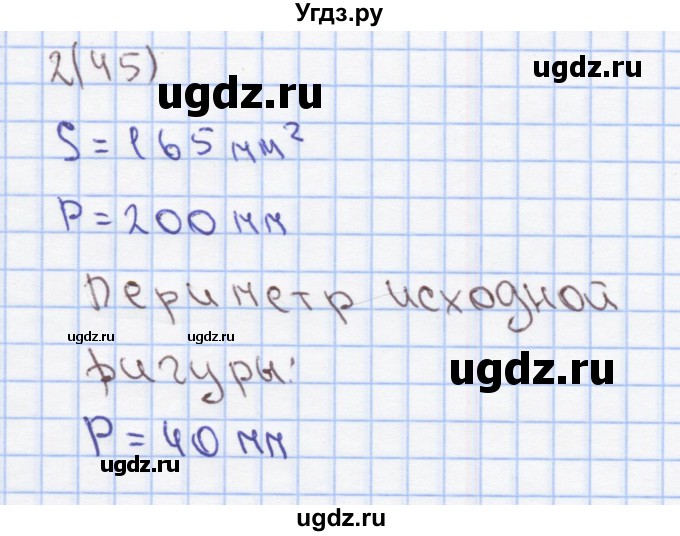 Угдз.ру
2(45)
ugdz.ru
ugdz.ru
S = 165 мм²
P = 200 мм
Периметр исходной
ugdz.ru
ugdz.ru
фигуры:
ugdz.ru
P = 40 мм
ugdz.ru
ugdz.ru